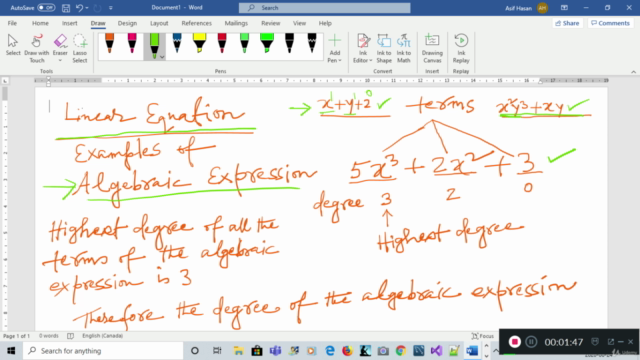 AutoSave Off
Document1 - Word
Search
Asif Hasan
AH
File Home Insert Draw Design Layout References Mailings Review View Help
Share Comments
Select Draw with Touch Eraser Lasso Select
Add Pen Ink Editor Ink to Shape Ink to Math Drawing Canvas Ink Replay
Tools Pens Convert Insert Replay
Linear Equation
→ x¹+y¹+2⁰ ✓ terms x²y³+xy ✓
Examples of
→ Algebraic Expression
5x³ + 2x² + 3 ✓
degree 3 2 0
Highest degree
Highest degree of all the
terms of the algebraic
expression is 3
Therefore the degree of the algebraic expression
Page 1 of 1 0 words English (Canada)
Focus
Type here to search
1:01:47